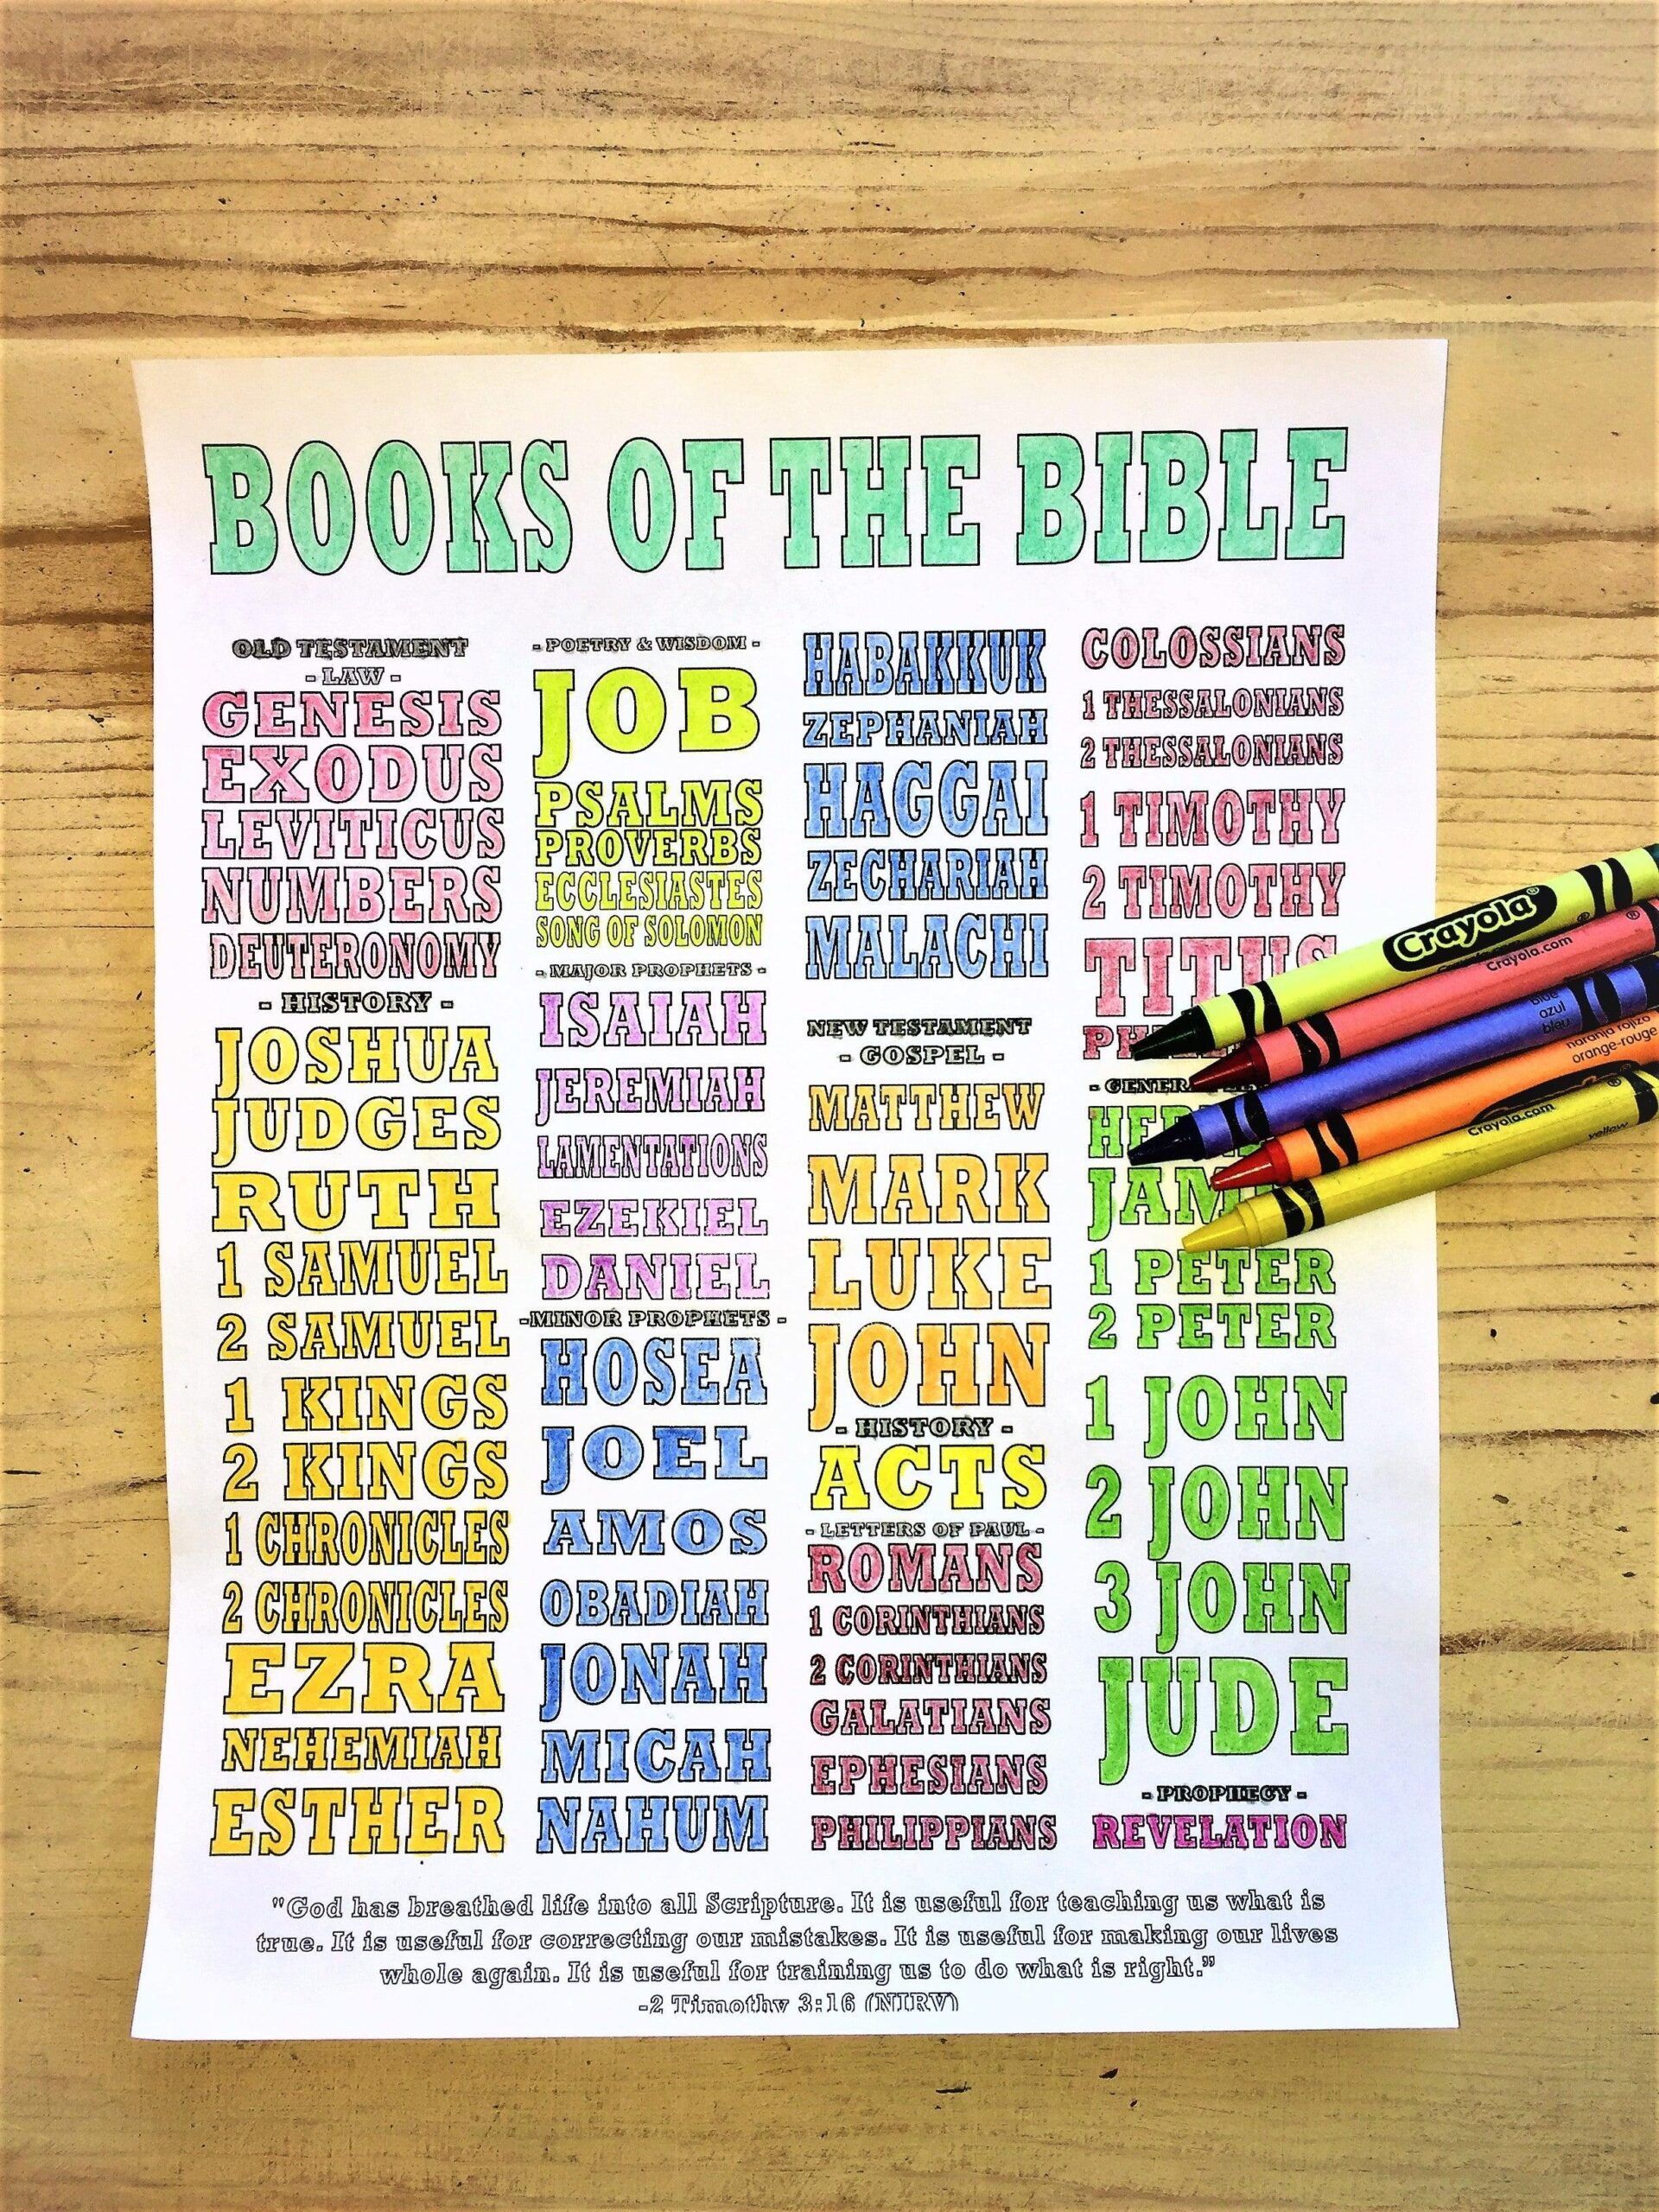 BOOKS OF THE BIBLE
OLD TESTAMENT
- LAW -
GENESIS
EXODUS
LEVITICUS
NUMBERS
DEUTERONOMY
- HISTORY -
JOSHUA
JUDGES
RUTH
1 SAMUEL
2 SAMUEL
1 KINGS
2 KINGS
1 CHRONICLES
2 CHRONICLES
EZRA
NEHEMIAH
ESTHER
- POETRY & WISDOM -
JOB
PSALMS
PROVERBS
ECCLESIASTES
SONG OF SOLOMON
- MAJOR PROPHETS -
ISAIAH
JEREMIAH
LAMENTATIONS
EZEKIEL
DANIEL
-MINOR PROPHETS -
HOSEA
JOEL
AMOS
OBADIAH
JONAH
MICAH
NAHUM
HABAKKUK
ZEPHANIAH
HAGGAI
ZECHARIAH
MALACHI
NEW TESTAMENT
- GOSPEL -
MATTHEW
MARK
LUKE
JOHN
- HISTORY -
ACTS
- LETTERS OF PAUL -
ROMANS
1 CORINTHIANS
2 CORINTHIANS
GALATIANS
EPHESIANS
PHILIPPIANS
COLOSSIANS
1 THESSALONIANS
2 THESSALONIANS
1 TIMOTHY
2 TIMOTHY
TITUS
1 PETER
2 PETER
1 JOHN
2 JOHN
3 JOHN
JUDE
- PROPHECY -
REVELATION
"God has breathed life into all Scripture. It is useful for teaching us what is
true. It is useful for correcting our mistakes. It is useful for making our lives
whole again. It is useful for training us to do what is right."
-2 Timothy 3:16 (NIRV)
Crayola®
Crayola.com
blue
azul
bleu
naranja rojizo
orange-rouge
Crayola.com
yellow